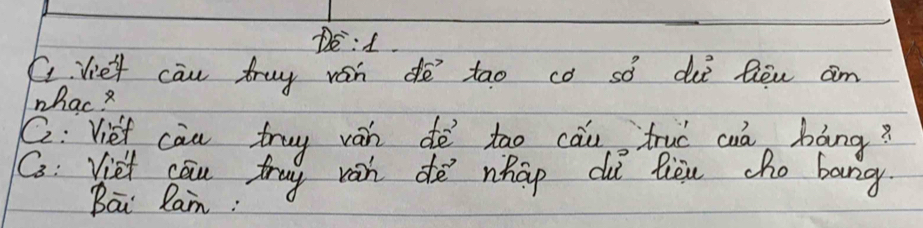 Đề: 1.
C1. Viết câu truy vấn để tạo cơ sở dữ liệu âm
nhạc?
C2: Viết câu truy vấn để tạo cấu trúc của bảng?
C3: Viết câu truy vấn để nhập dữ liệu cho bảng.
Bài làm: